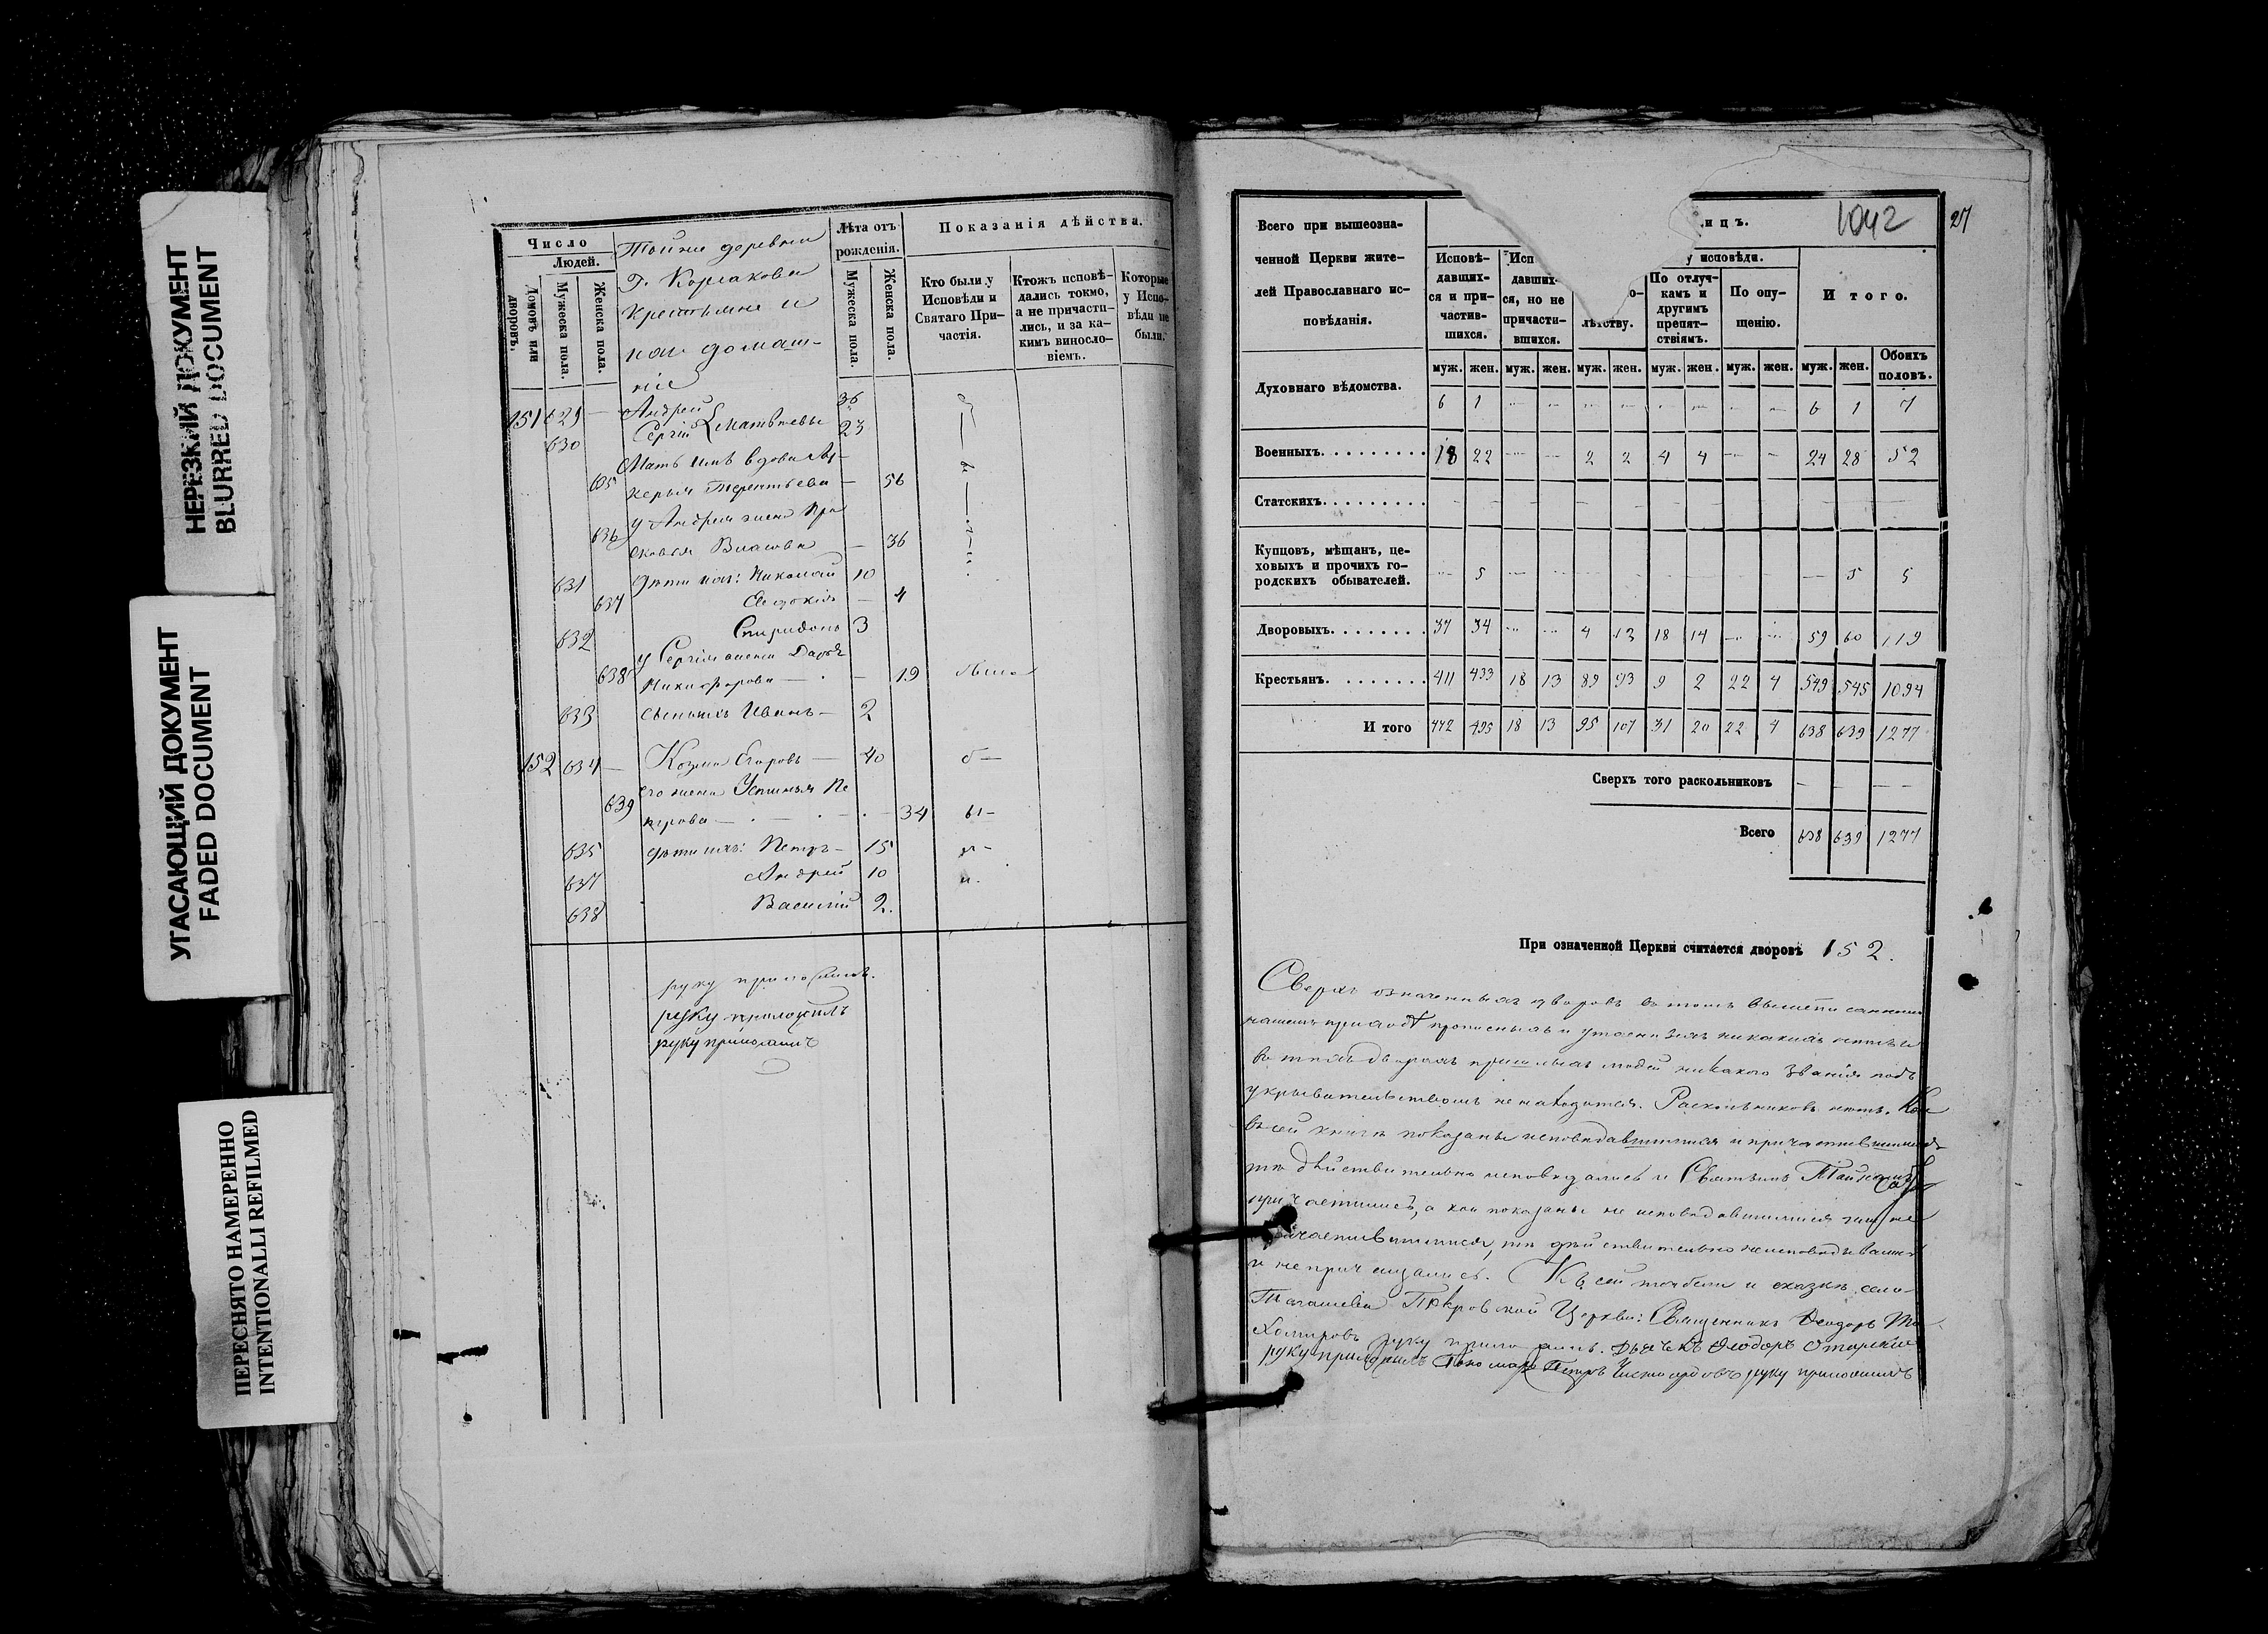 НЕРЕЗКИЙ ДОКУМЕНТ
BLURRED DOCUMENT
УГАСАЮЩИЙ ДОКУМЕНТ
FADED DOCUMENT
ПЕРЕСНЯТО НАМЕРЕННО
INTENTIONALLI REFILMED
Число
Людей.
Домовъ или дворовъ.
Мужеска пола.
Женска пола.
Тойже деревни
Г. Корсакова
крестьяне и
ихъ домаш-
ніе
Лѣта отъ рожденія.
Мужеска пола.
Женска пола.
Показанія дѣйства.
Кто были у Исповѣди и Святаго Причастія.
Ктожъ исповѣдались токмо, а не причастились, и за какимъ винословіемъ.
Которые у Исповѣди не были.
151 629 — Андрей 36
630 Сергій Матвѣевы 23
Мать ихъ вдова
635 Терентьева — 56
636 у Андрея жена Пра
сковья Власова — 36
631 дѣти ихъ: Николай 10
637 Евдокія — 4
632 Спиридонъ 3
у Сергія жена Дарья
638 Никифорова — 19 были
633 сынъ ихъ Иванъ — 2
152 634 — Козма Егоровъ — 40 б —
его жена Устинья Пе
639 трова — 34 ы —
635 дѣти ихъ: Петръ — 15 л —
637 Андрей 10 и.
638 Василій 2.
руку приложилъ.
руку приложилъ
руку приложилъ
1042
27
Всего при вышеозначенной Церкви жителей Православнаго исповѣданія.
ицъ.
Исповѣдавшихся и причастившихся.
Исп давших- ся, но не причастившихся.
у исповѣди.
о- лѣтству.
По отлучкамъ и другимъ препятствіямъ.
По опущенію.
Итого.
муж. жен. муж. жен. муж. жен. муж. жен. муж. жен. муж. жен. Обоихъ половъ.
Духовнаго вѣдомства. 6 1 — — — — — — — — 6 1 7
Военныхъ. 18 22 — — 2 2 4 4 — — 24 28 52
Статскихъ. — — — — — — — — — — — — —
Купцовъ, мѣщанъ, цеховыхъ и прочихъ городскихъ обывателей. — 5 — — — — — — — — — 5 5
Дворовыхъ. 37 34 — — 4 12 18 14 — — 59 60 119
Крестьянъ. 411 433 18 13 89 93 9 2 22 4 549 545 1094
Итого 472 495 18 13 95 107 31 20 22 4 638 639 1277
Сверхъ того раскольниковъ — — —
Всего 638 639 1277
При означенной Церкви считается дворовъ 152.
Сверхъ означенныхъ дворовъ въ томъ вышеписанномъ
нашемъ приходѣ прописныхъ и утаенныхъ никакихъ нѣтъ и
въ тѣхъ дворахъ пришлыхъ людей никакого званія подъ
укрывательствомъ не находится. Раскольниковъ нѣтъ. Кои
въ сей книгѣ показаны исповѣдавшимися и причастившимися
тѣ дѣйствительно исповѣдались и Святымъ Тайнамъ
причастились, а кои показаны не исповѣдавшимися и не
причастившимися, тѣ дѣйствительно неисповѣдывались
и непричащались. Къ сей и сказкѣ села
Покровской Церкви: Священникъ Ѳеодоръ Ти
хомировъ руку приложилъ. Дьячекъ Ѳеодоръ
руку приложилъ Пономарь Петръ руку приложилъ